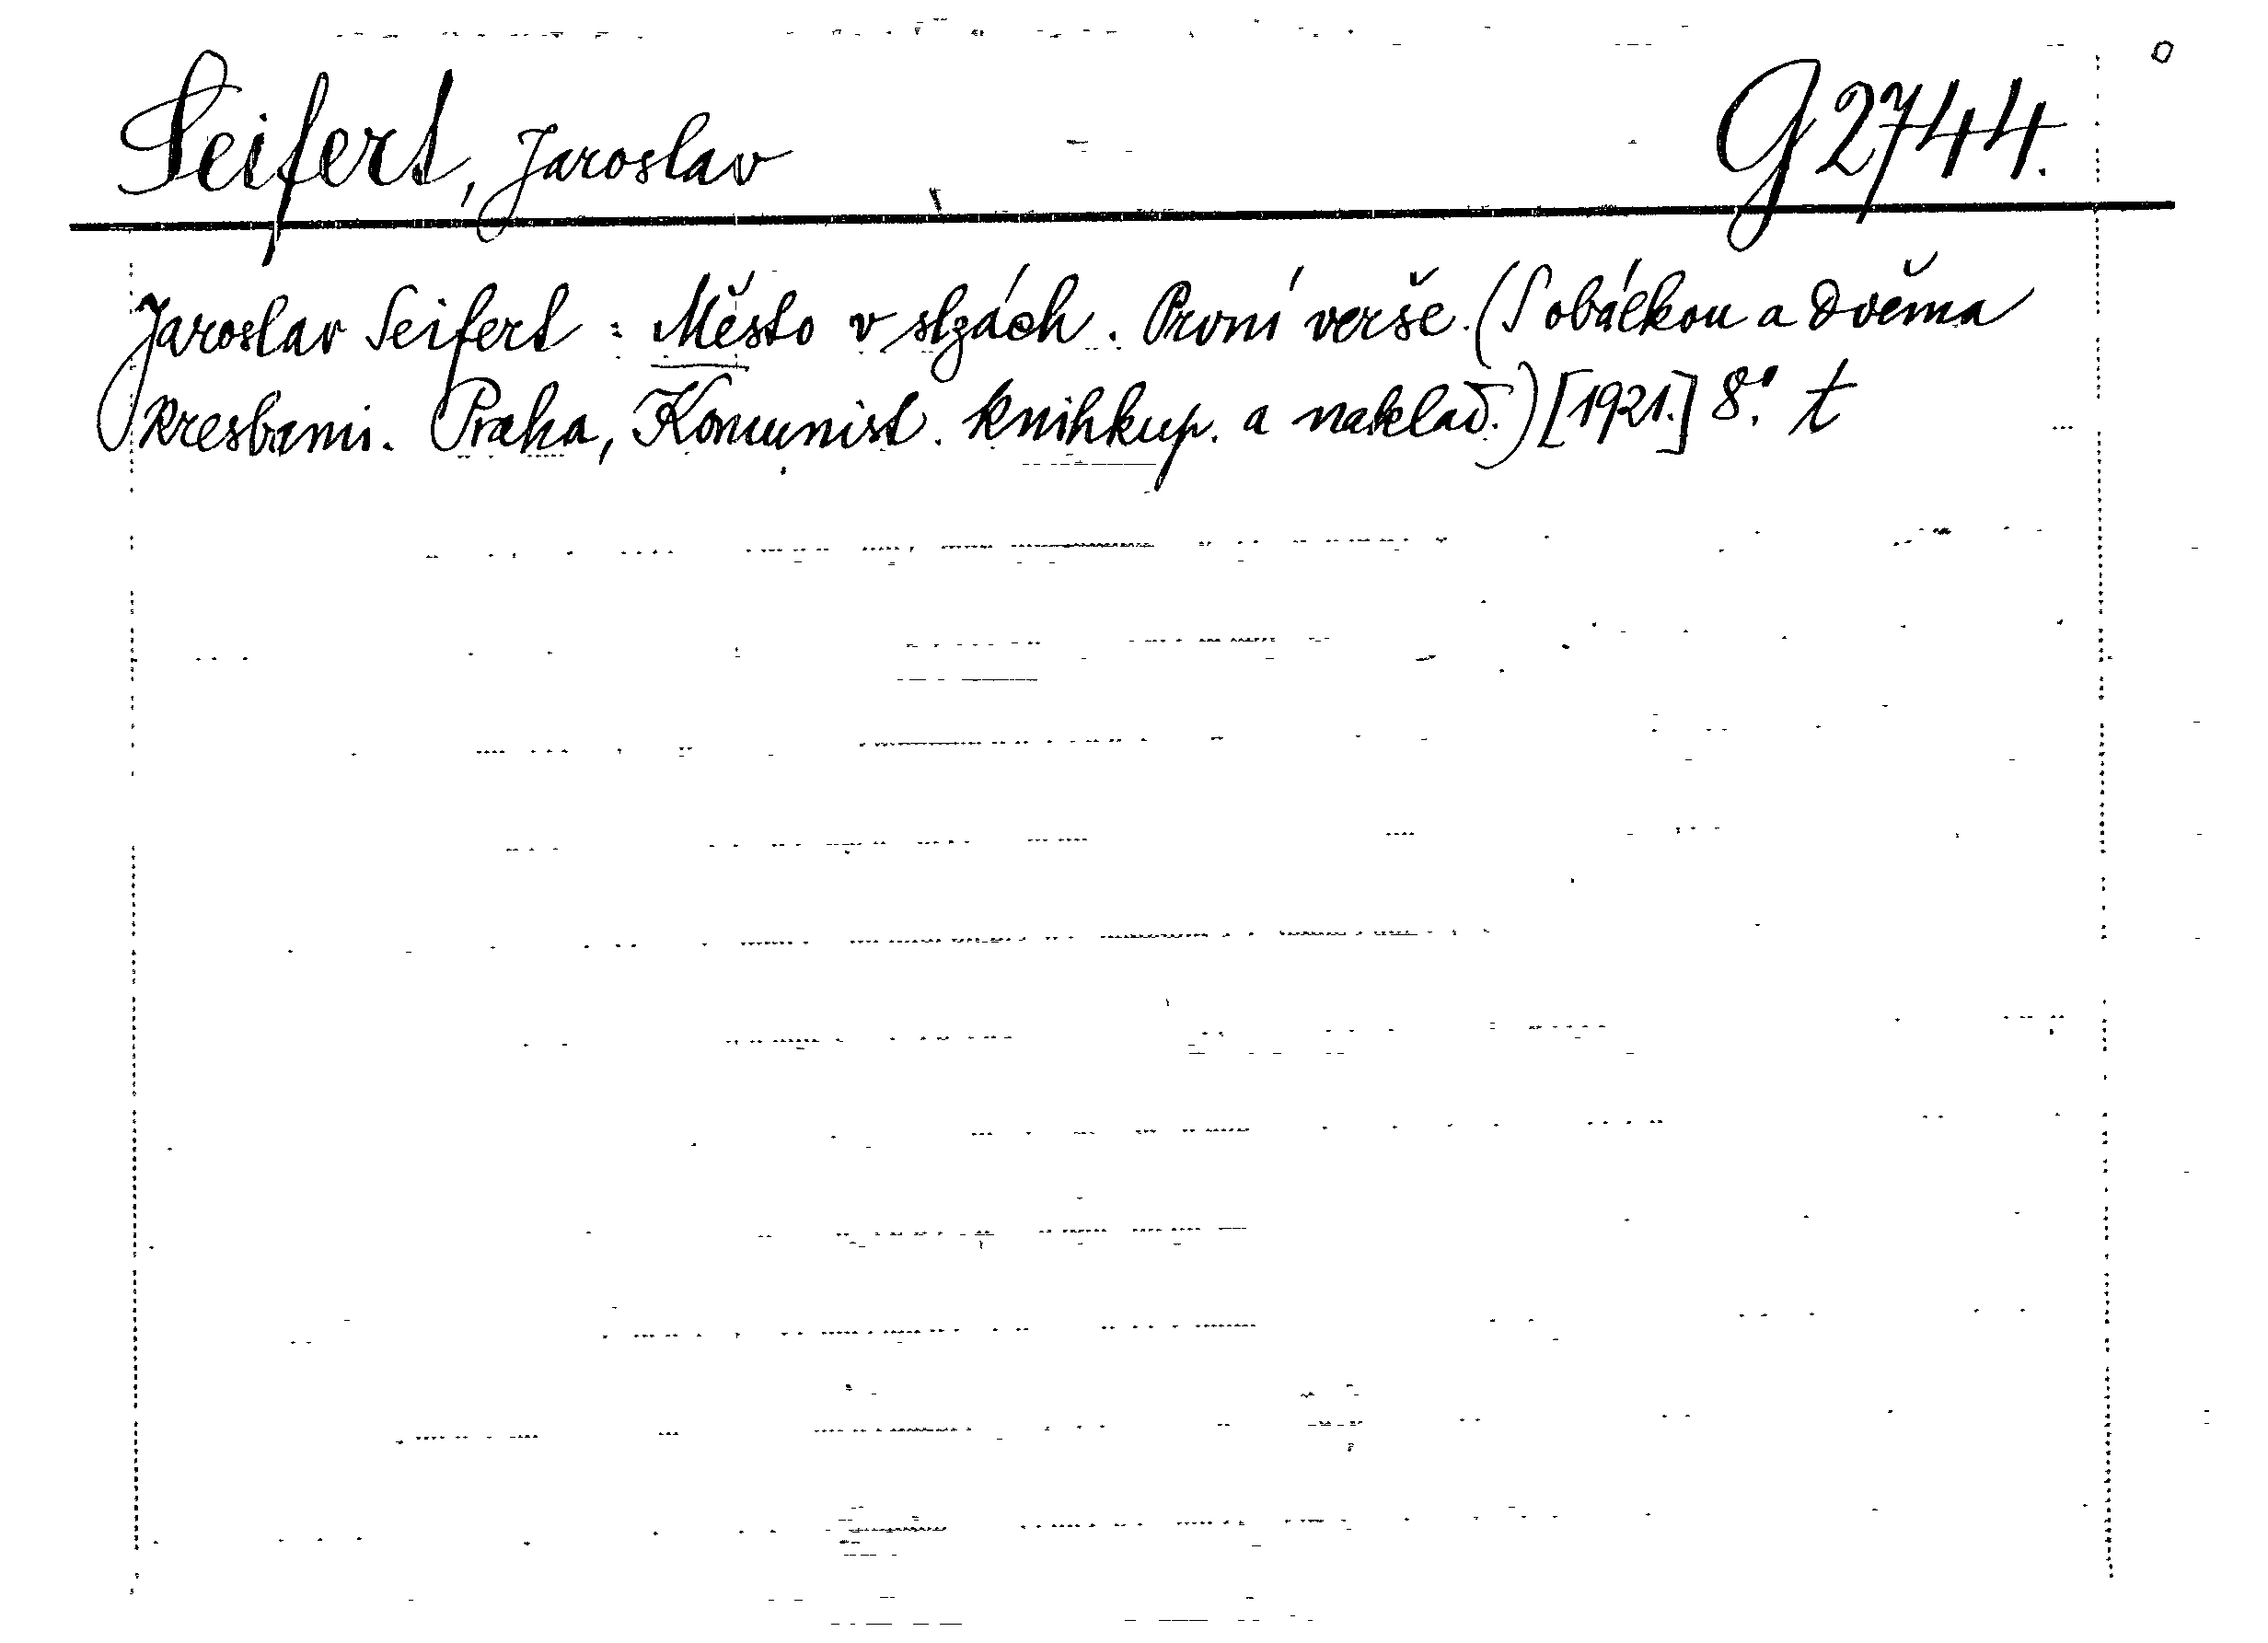 Seifert, Jaroslav G 2744.
Jaroslav Seifert : Město v slzách. První verše. (S obálkou a dvěma
kresbami. Praha, Komunist. knihkup. a naklad.) [1921.] 8°. t